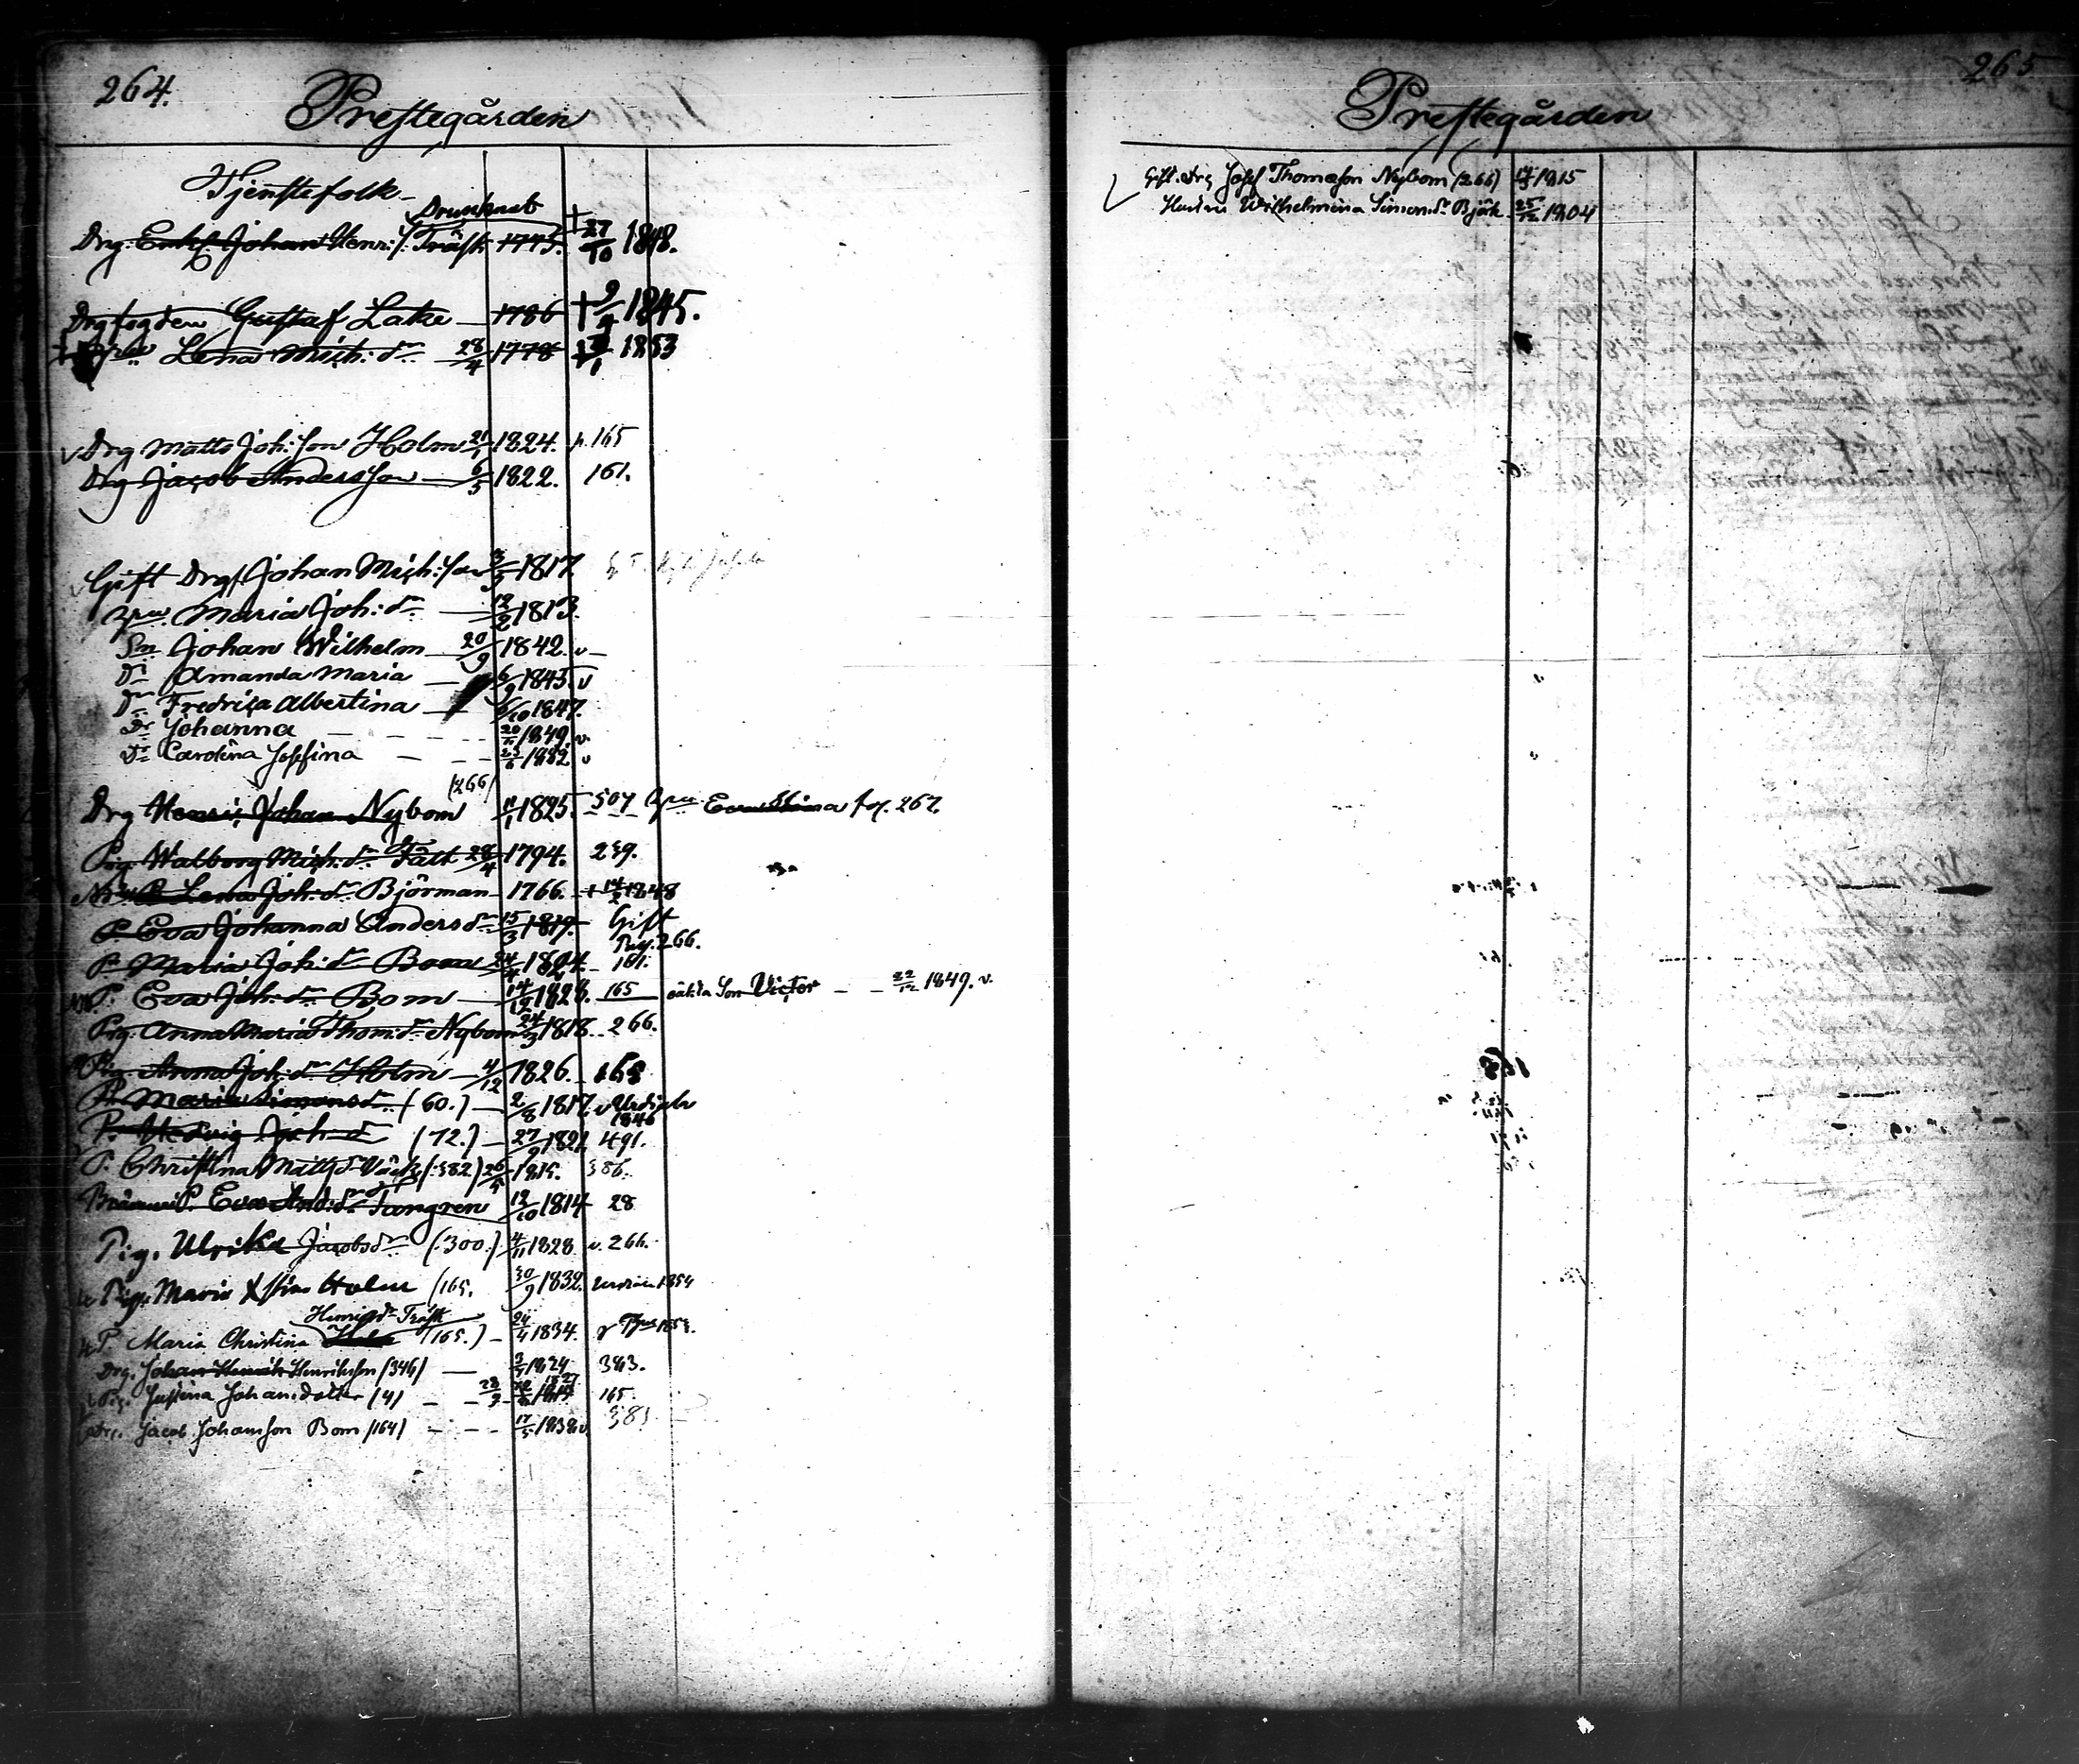 264.
Prestegården
Tjenstefolk
Drunknat
Drg. Enkl. Johan Henr: s. Träsk 1775. † 27/10 1848.
Drgfogden Gustaf Lake 1786 † 9/4 1845.
Lena Mich: dr 28/4 1778 1853
Drg Matts Joh: son Holm 21/1 1824. p. 165
Drg Jacob Andersson 6/5 1822. 161.
Gift Drg Johan Mich: son 3/3 1817
Maria Joh: dr 12/2 1813.
Son Johan Wilhelm 20/9 1842. v
Dr Amanda Maria 6/9 1845. v
Dr Fredrica Albertina 6/10 1847.
Dr Johanna 20/11 1849. v.
Dr Carolina Josefina 1852. v
(266)
Drg Henric Johan Nybom 11/1 1825. 507 Eva Stina fol. 267.
Pig. Walborg Mich: dr Fält 28/4 1794. 249.
Lena Joh: dr Björman 1766. † 14/2 1848
P. Eva Johanna Anders dr 15/3 1819. Gift
Pag. 266.
P. Maria Joh: dr Bom 24/4 1824. 161.
P. Eva Joh: dr Bom 14/12 1828. 165 oäkta Son Victor 22/12 1849. v.
Pig. Anna Maria Thom: dr Nybom 24/3 1818. 266.
Pig. Anna Joh: dr Holm 4/12 1826. 168
P. Maria Simons dr (60.) 2/8 1817. v
1846
P. Hedvig Joh: d (72.) 27/9 1821 491.
P. Christina Matts dr (382) 26/4 1815. 386.
P. Eva And: dr Tangren 12/10 1814 28
Pig. Ulrika Jacobs dr (300.) 4/11 1828 v. 266.
Pig. Maria Stina Holm (165. 30/9 1832. 1854
Henrics dr Träsk
P. Maria Christina Holm (165.) 24/4 1834.
Drg. Johan Henrik Henriksson (346) 1824 383.
1827
Pig. Justina Johansdotter (4) 28/2 165.
Drg. Jacob Johansson Bom (164) 17/5 1838 v 383
265
Prestegården
Gift. Drg Josef Thomasson Nybom (266) 17/3 1815
Hustru Wilhelmina Simons dr Björk 25/12 1804